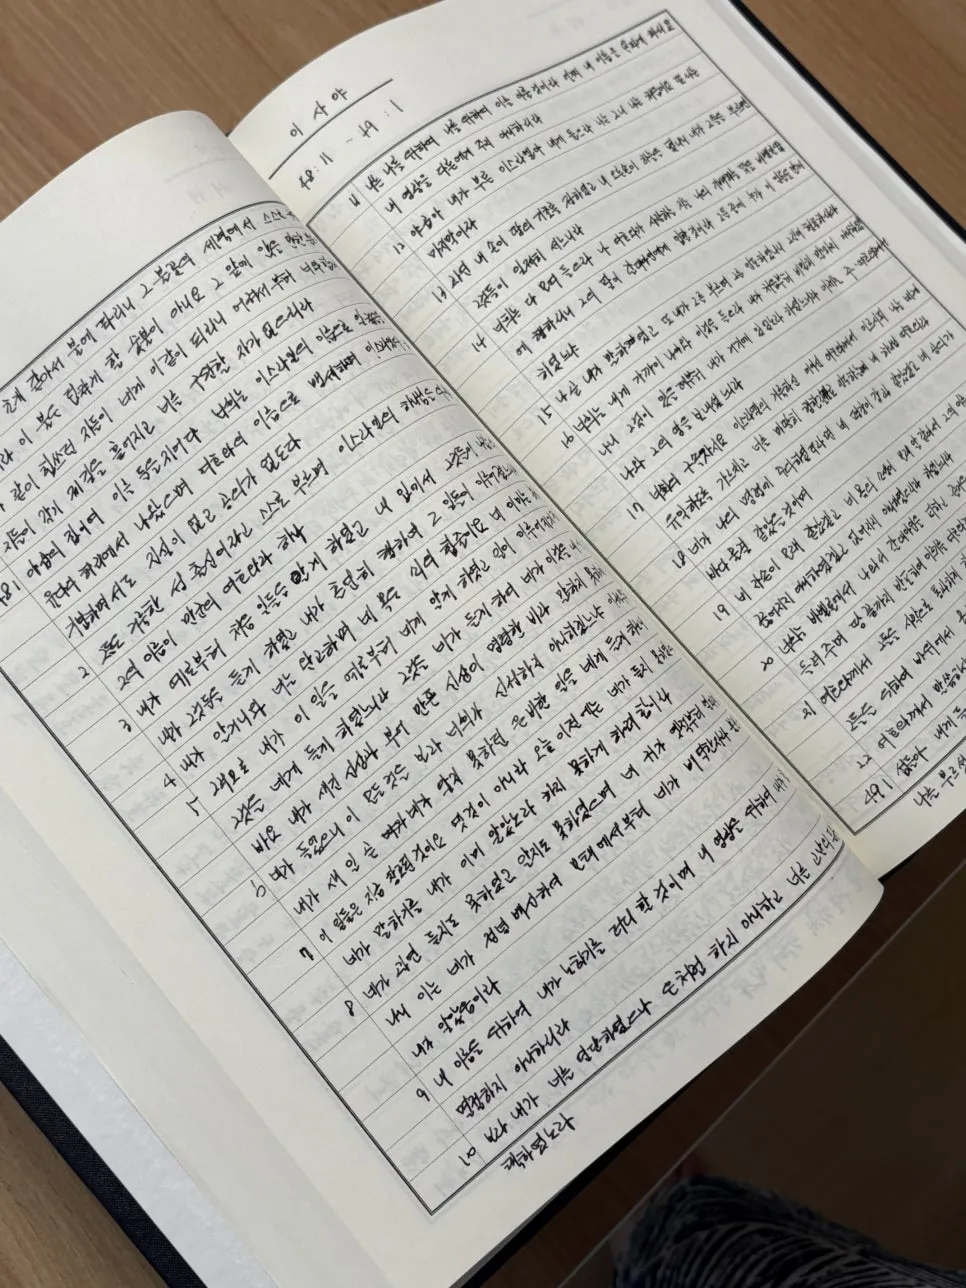 초개 같아서 불에 타리니 그 불꽃의 세력에서 스스로
이 불은 덥게 할 숯불이 아니요 그 앞에 앉을 만한
같이 힘쓰던 자들이 네게 이같이 되리니 어려서부터 너와 함께
자들이 각기 제 길로 흩어지고 너를 구원할 자가 없으리라
48 1 야곱의 집이여 이를 들을지어다 너희는 이스라엘의 이름으로 일컬음
유다의 허리에서 나왔으며 여호와의 이름으로 맹세하며 이스라엘
기념하면서도 진실이 없고 공의가 없도다
2 그들은 거룩한 성 출신이라고 스스로 부르며 이스라엘의 하나님을
그의 이름이 만군의 여호와라 하나
3 내가 예로부터 처음 일들을 알게 하였고 내 입에서 그것들이
내가 그것들을 듣게 하였고 내가 홀연히 행하여 그 일들이 이루어졌
4 내가 알거니와 너는 완고하며 네 목은 쇠의 힘줄이요 네 이마는
5 그러므로 내가 이 일을 예로부터 네게 알게 하였고 일이 이루어지기
그것을 네게 듣게 하였느니라 그것을 네가 듣게 하여 네가 이것을
바요 내가 새긴 신상과 부어 만든 신상이 명령한 바라 말하지 못
6 네가 들었으니 이 모든 것을 보라 너희가 선전하지 아니하겠느냐 이제부터
내가 새 일 곧 네가 알지 못하던 은비한 일을 네게 듣게 하
7 이 일들은 지금 창조된 것이요 옛 것이 아니라 오늘 이전에는 네가 듣지 못하
네가 말하기를 내가 이미 알았노라 하지 못하게 하려 함이라
8 네가 과연 듣지도 못하였고 알지도 못하였으며 네 귀가 옛적부터
내서 이는 네가 정녕 배신하여 모태에서부터 네가 배역한 자라
내가 알았음이라
9 내 이름을 위하여 내가 노하기를 더디 할 것이며 내 영광을 위하여 내가
멸절하지 아니하리라
10 보라 내가 너를 연단하였으나 은처럼 하지 아니하고 너를 고난의
택하였노라
이 사 야
48:11 - 49:1
11 나는 나를 위하며 나를 위하여 이를 이룰 것이라 어찌 내 이름을 욕되게 하리요
내 영광을 다른 자에게 주지 아니하리라
12 야곱아 내가 부른 이스라엘아 내게 들으라 나는 그니 나는 처음이요 또 나는
마지막이라
13 과연 내 손이 땅의 기초를 정하였고 내 오른손이 하늘을 폈나니 내가 그들을 부르면
그것들이 일제히 서느니라
14 너희는 다 모여 들으라 나 여호와가 사랑하는 자는 나의 기뻐하는 뜻을 바벨론
에 행하리니 그의 팔이 갈대아인에게 임할 것이라 그들 중에 누가 이 일들을 알게
하였느냐
15 나 곧 내가 말하였고 또 내가 그를 부르며 그를 인도하였나니 그 길이 형통하리라
16 너희는 내게 가까이 나아와 이것을 들으라 내가 처음부터 비밀히 말하지 아니하였
나니 그것이 있을 때부터 내가 거기에 있었노라 하셨느니라 이제는 주 여호와께서
나와 그의 영을 보내셨느니라
17 너희의 구속자시요 이스라엘의 거룩하신 이신 여호와께서 이르시되 나는 네게
유익하도록 가르치고 너를 마땅히 행할 길로 인도하는 네 하나님 여호와라
18 네가 나의 명령에 주의하였더라면 네 평강이 강과 같았겠고 네 공의가
바다 물결 같았을 것이며
19 네 자손이 모래 같았겠고 네 몸의 소생이 모래 알 같아서 그의 이름이
끊어지지 아니하였겠고 없어지지 아니하였으리라 하셨느니라
20 너희는 바벨론에서 나와서 갈대아인을 피하고
들려주며 땅 끝까지 반포하여 이르기를
21 여호와께서 그들을 사막으로 통과하게
그들을 위하여 바위에서
22 여호와께서 말씀하
49 1 섬들아 내게 들
나를 부르셨